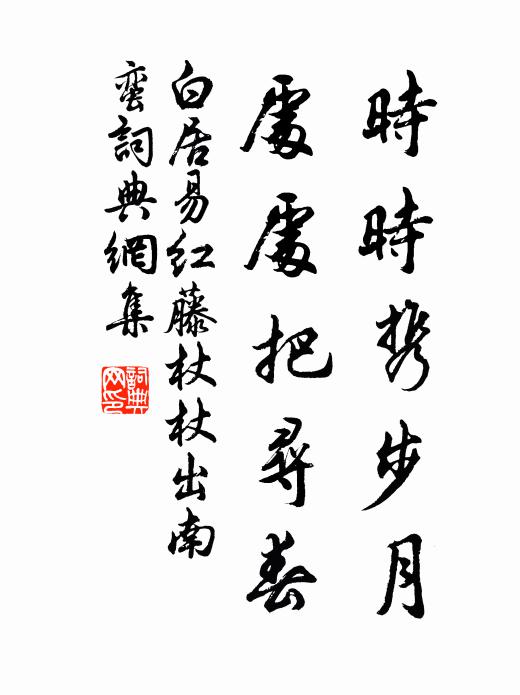 時時携步月
處處把尋春
白居易紅藤杖杖出南
蛮詞典網集
詞典
网印